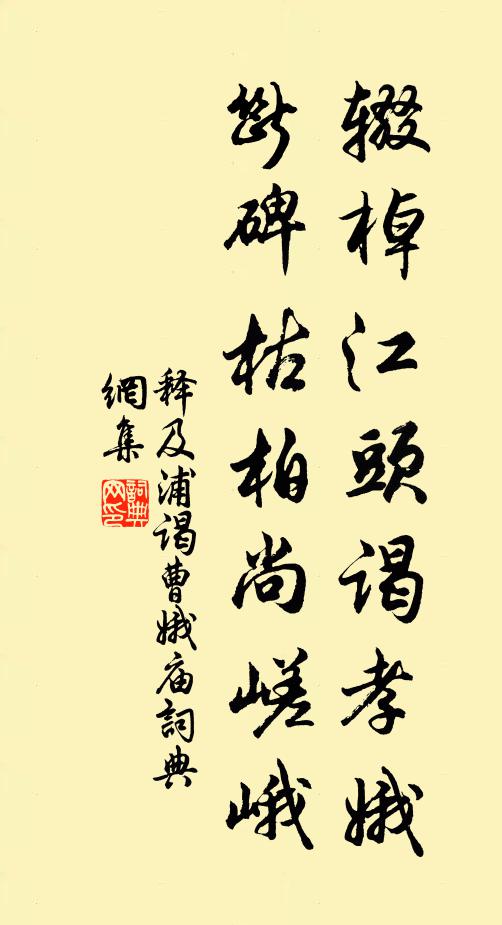 辍棹江頭谒孝娥
断碑枯柏尚嵯峨
释及浦谒曹娥庙詞典
網集
詞典
网印